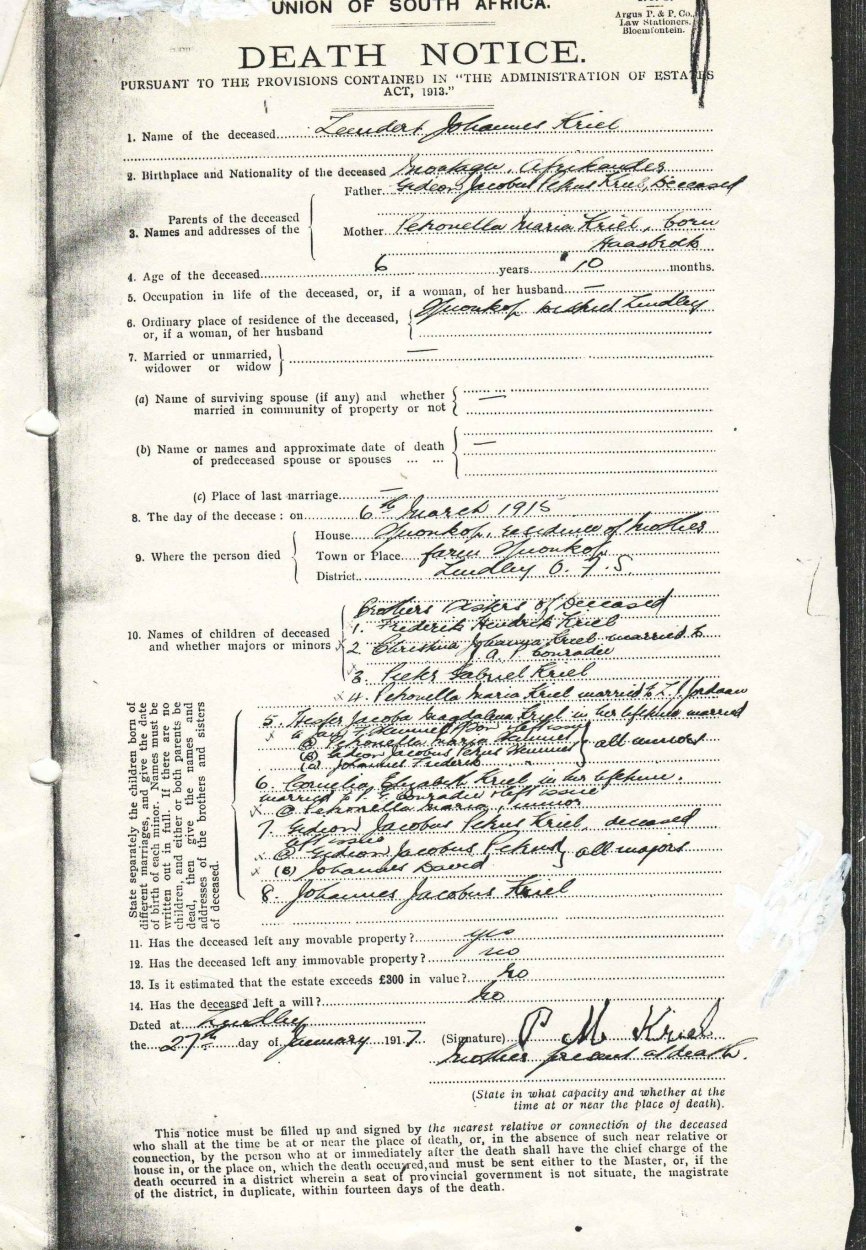 UNION OF SOUTH AFRICA.
Argus P. & P. Co.,
Law Stationers,
Bloemfontein.
DEATH NOTICE.
PURSUANT TO THE PROVISIONS CONTAINED IN "THE ADMINISTRATION OF ESTATES
ACT, 1913."
1. Name of the deceased Leendert Johannes Kriel
2. Birthplace and Nationality of the deceased Afrikander
Father Gideon Jacobus Petrus Kriel, Deceased
Parents of the deceased
3. Names and addresses of the
Mother Petronella Maria Kriel, born
Haasbroek
4. Age of the deceased 6 years 10 months.
5. Occupation in life of the deceased, or, if a woman, of her husband —
6. Ordinary place of residence of the deceased, district Lindley
or, if a woman, of her husband
7. Married or unmarried, —
widower or widow
(a) Name of surviving spouse (if any) and whether —
married in community of property or not
(b) Name or names and approximate date of death —
of predeceased spouse or spouses ... ...
(c) Place of last marriage —
8. The day of the decease: on 6th March 1915
House residence of mother
9. Where the person died
Town or Place farm
District Lindley O. F. S
Brothers & Sisters of Deceased
10. Names of children of deceased
and whether majors or minors
1. Frederik Hendrik Kriel
x 2 Christina Johanna Kriel married to
J. A. P. Conradie
x 3 Pieter Gabriel Kriel
x 4. Petronella Maria Kriel married to L. J. Jordaan
State separately the children born of
different marriages, and give the date
of birth of each minor. Names must be
written out in full. If there are no
children, and either or both parents be
dead, then give the names and
addresses of the brothers and sisters
of deceased.
5. Hester Jacoba Magdalena Kriel in her lifetime married
left issue
Petronella Maria
(B) Gideon Jacobus Petrus all minors
Johannes Frederik
6. Cornelia Elizabeth Kriel in her lifetime,
married to Conradie & left issue
x Petronella Maria, minor
7. Gideon Jacobus Petrus Kriel, deceased
left issue
x Gideon Jacobus Petrus
x (B) Johannes David all majors
8. Johannes Jacobus Kriel
11. Has the deceased left any movable property? yes
12. Has the deceased left any immovable property? no
13. Is it estimated that the estate exceeds £300 in value? No
14. Has the deceased left a will? No
Dated at Lindley
the 27th day of January 1917
(Signature) P M Kriel
Mother present at death.
(State in what capacity and whether at the
time at or near the place of death).
This notice must be filled up and signed by the nearest relative or connection of the deceased
who shall at the time be at or near the place of death, or, in the absence of such near relative or
connection, by the person who at or immediately after the death shall have the chief charge of the
house in, or the place on, which the death occurred, and must be sent either to the Master, or, if the
death occurred in a district wherein a seat of provincial government is not situate, the magistrate
of the district, in duplicate, within fourteen days of the death.